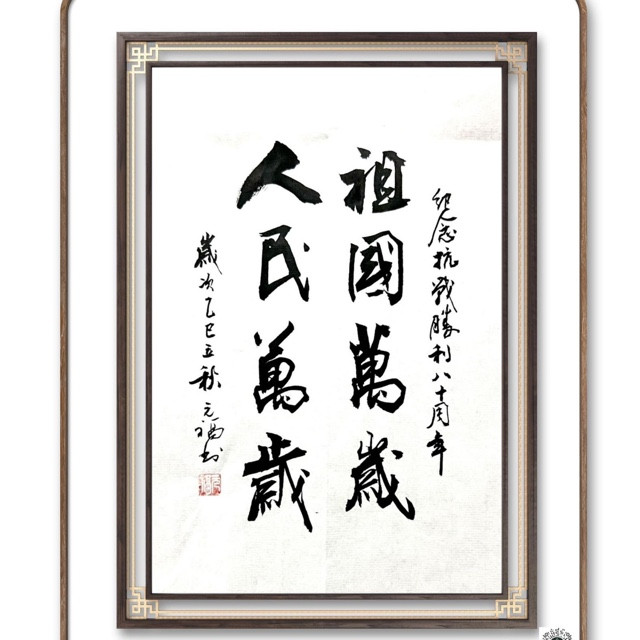 紀念抗戰勝利八十周年
祖國萬歲
人民萬歲
歲次乙巳立秋 元福书